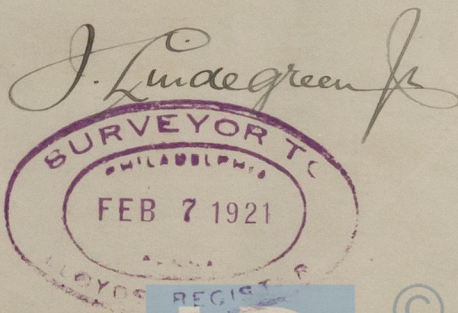 J. Lindegreen Jr
SURVEYOR TO
PHILADELPHIA
FEB 7 1921
LLOYDS REGISTER
©